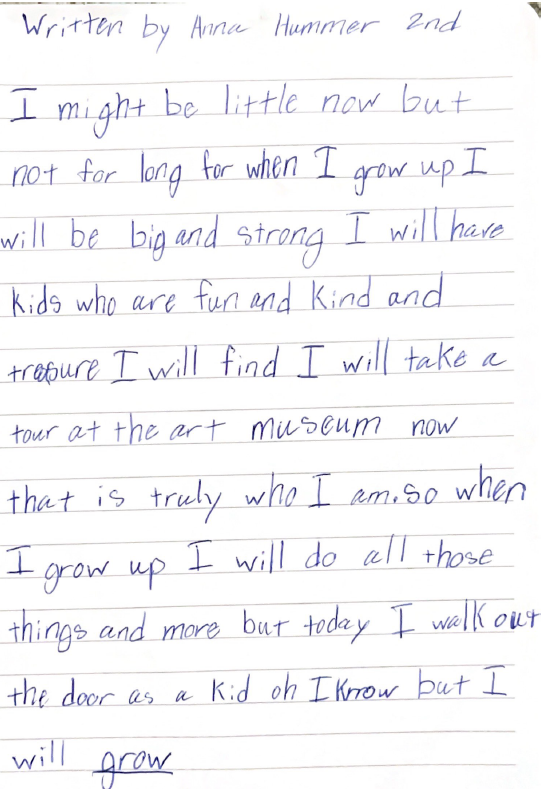 Written by Anna Hummer 2nd
I might be little now but
not for long for when I grow up I
will be big and strong I will have
kids who are fun and kind and
treasure I will find I will take a
tour at the art museum now
that is truly who I am. so when
I grow up I will do all those
things and more but today I walk out
the door as a kid oh I know but I
will grow